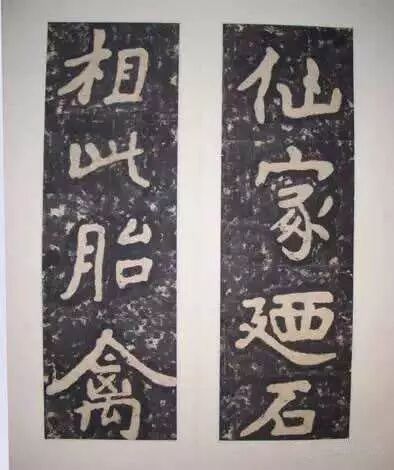 仙家廼石
相此胎禽